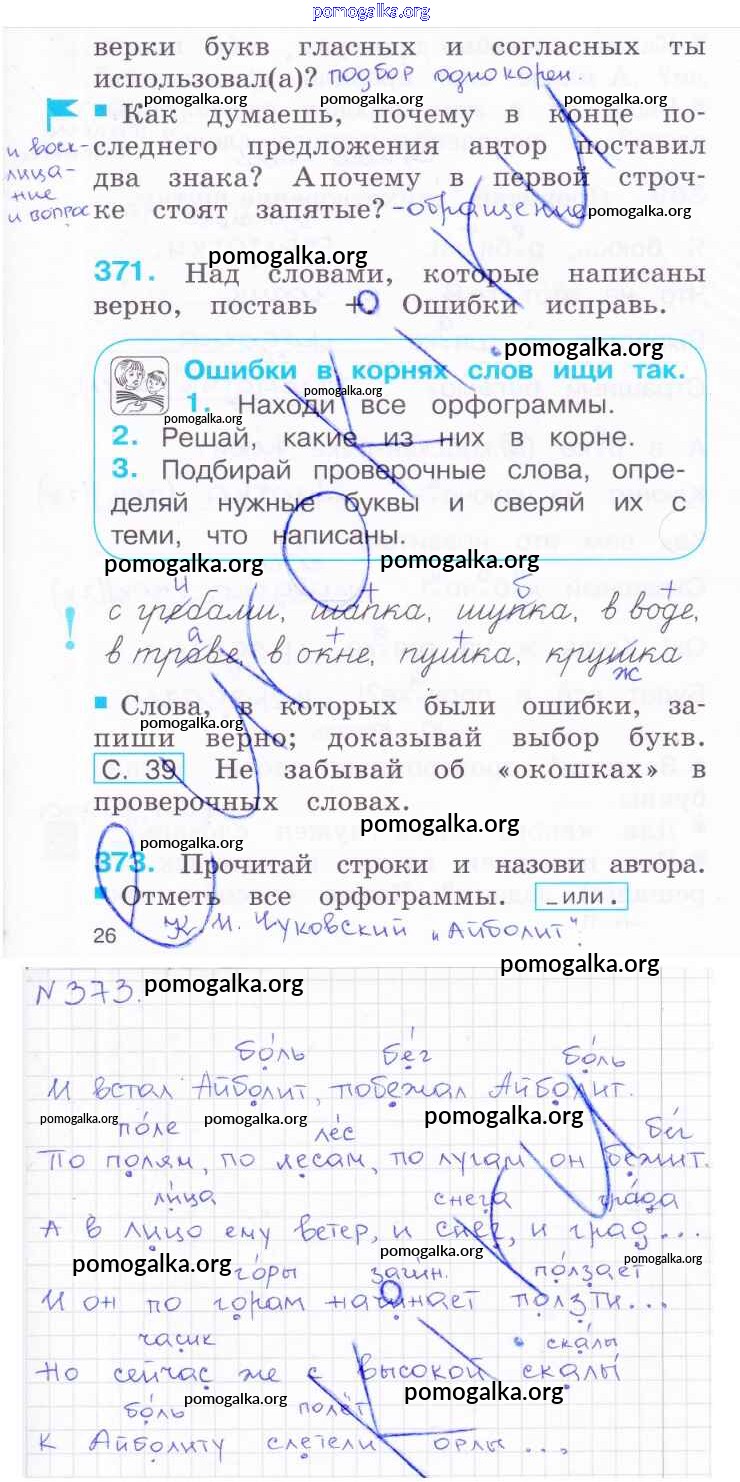 pomogalka.org
верки букв гласных и согласных ты
использовал(а)? подбор однокорен.
pomogalka.org pomogalka.org pomogalka.org
Как думаешь, почему в конце по-
и воск- следнего предложения автор поставил
лица- два знака? А почему в первой строч-
ние
и вопрос ке стоят запятые? - обращение
pomogalka.org
pomogalka.org
371. Над словами, которые написаны
верно, поставь +. Ошибки исправь.
pomogalka.org
Ошибки в корнях слов ищи так.
pomogalka.org
1. Находи все орфограммы.
pomogalka.org
2. Решай, какие из них в корне.
3. Подбирай проверочные слова, опре-
деляй нужные буквы и сверяй их с
теми, что написаны.
pomogalka.org pomogalka.org
и + б +
! с гребами, шапка, шупка, в воде,
а + +
в трове, в окне, пушка, крушка
ж
Слова, в которых были ошибки, за-
pomogalka.org
пиши верно; доказывай выбор букв.
С. 39 Не забывай об «окошках» в
проверочных словах.
pomogalka.org
pomogalka.org
373. Прочитай строки и назови автора.
pomogalka.org
Отметь все орфограммы. _ или .
26 К. И. Чуковский "Айболит".
pomogalka.org
N 373. pomogalka.org
бо́ль бе́г бо́ль
И встал Айболит, побежал Айболит.
pomogalka.org pomogalka.org pomogalka.org
по́ле ле́с бе́г
По полям, по лесам, по лугам он бежит.
ли́ца снега гра́да
А в лицо ему ветер, и снег, и град...
pomogalka.org pomogalka.org pomogalka.org
го́ры зачин. по́лзает
И он по горам начинает ползти...
часик ска́лы
Но сейчас же с высокой скалы́
pomogalka.org pomogalka.org
бо́ль полёт
К Айболиту слетели орлы...,
pomogalka.org